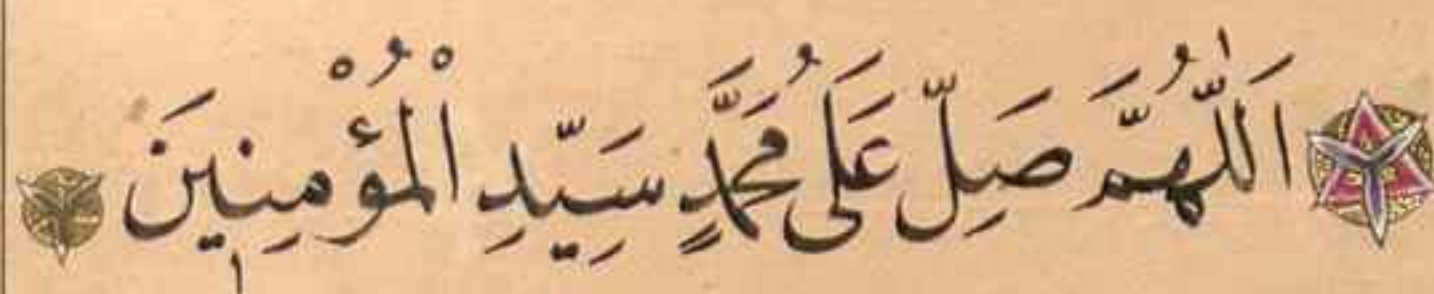 اَللّٰهُمَّ صَلِّ عَلَى مُحَمَّدٍ سَيِّدِ الْمُؤْمِنِينَ